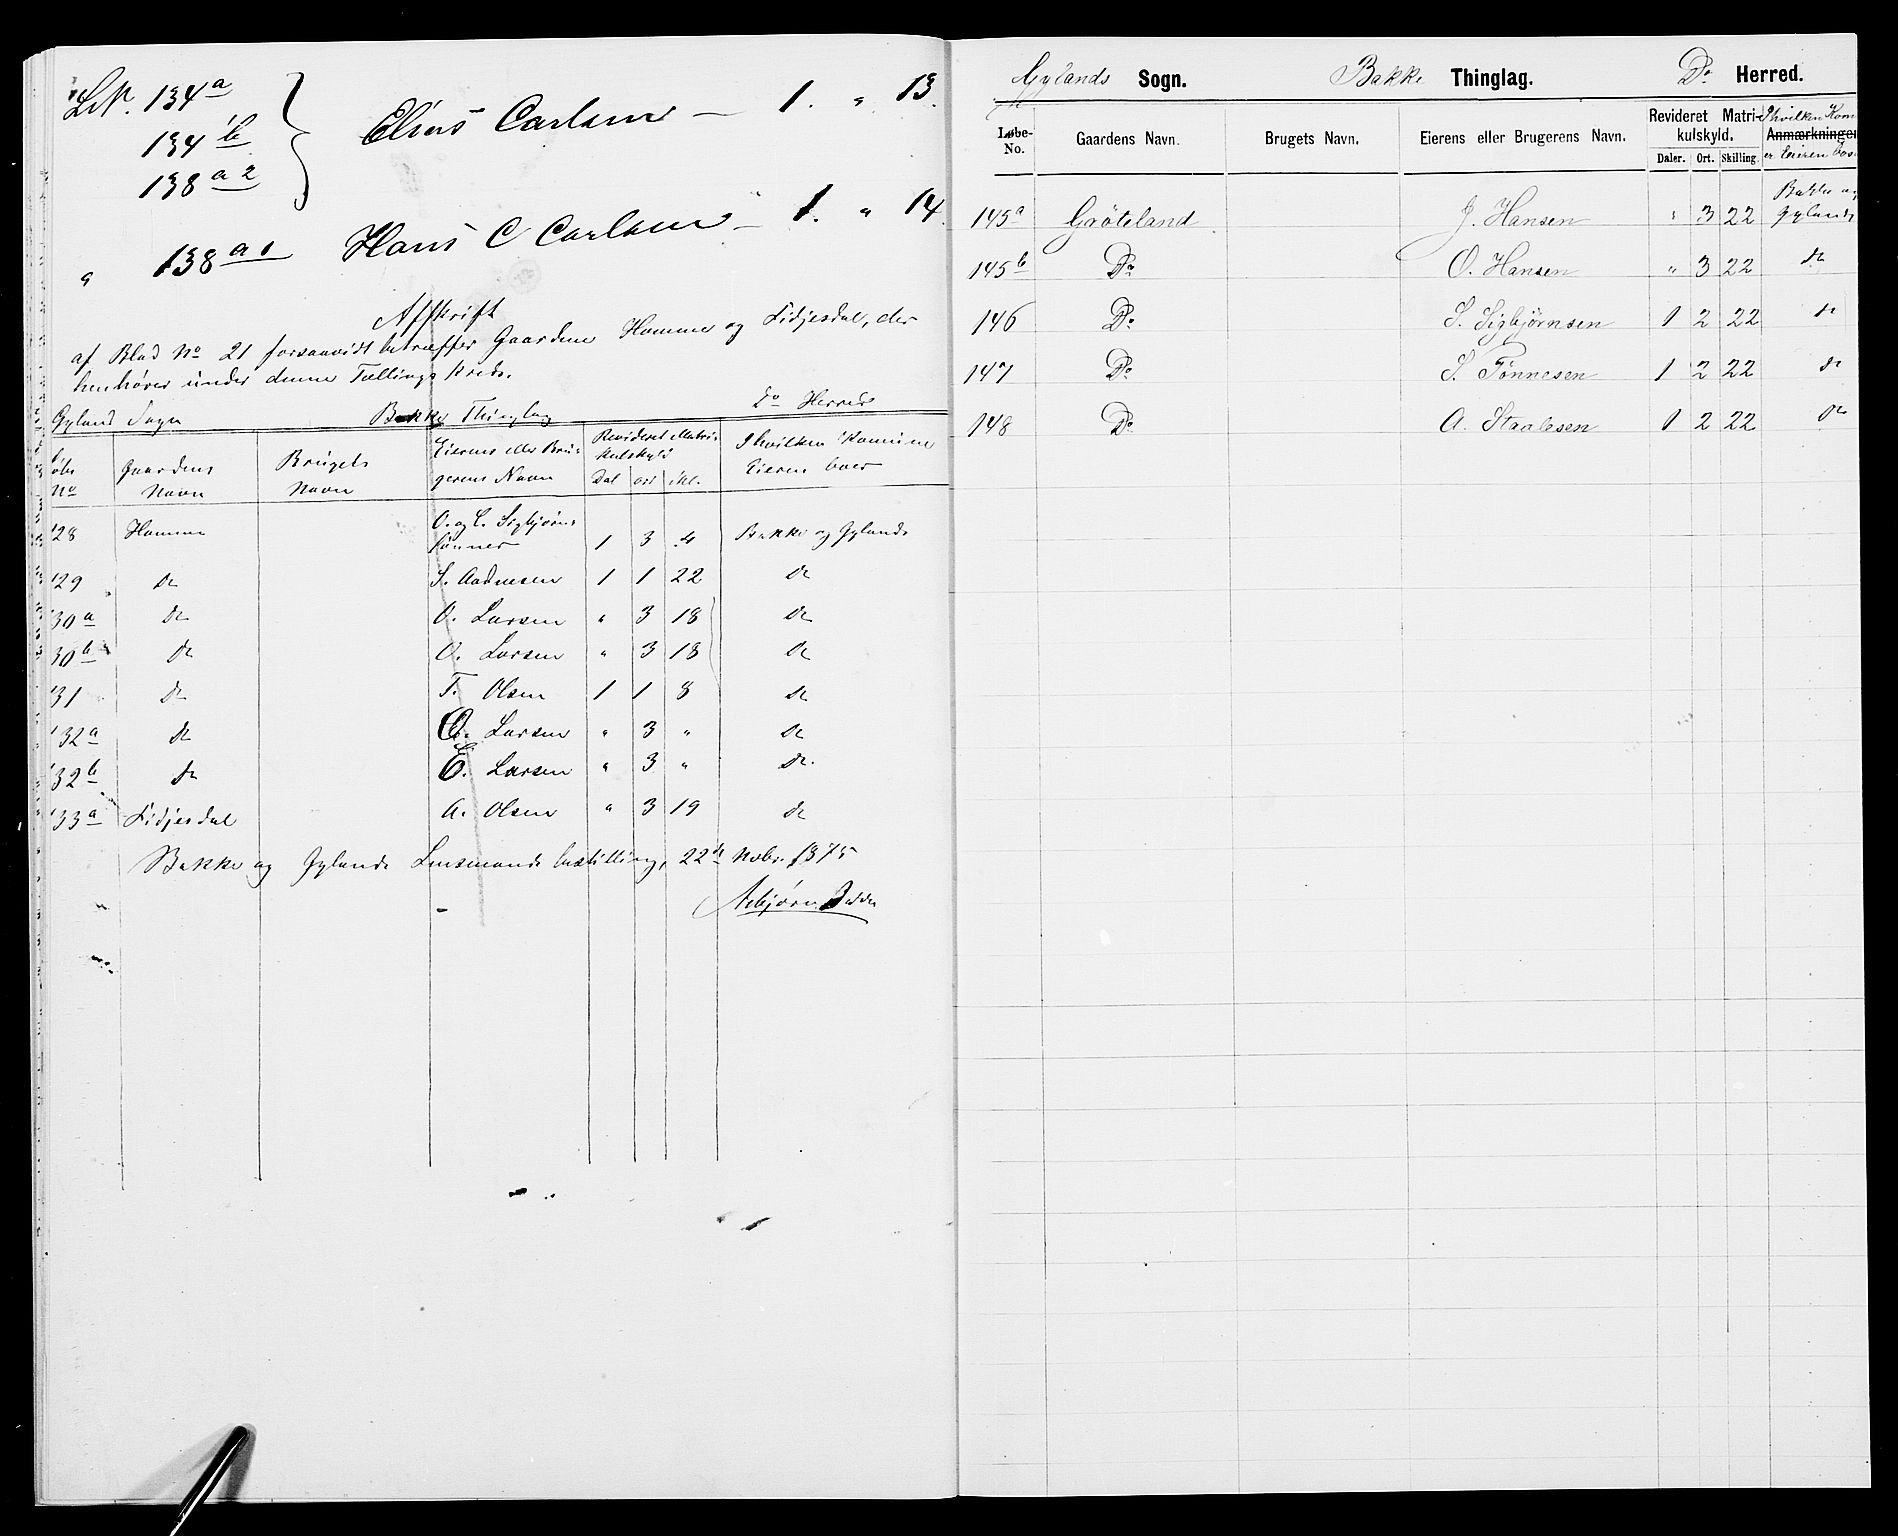 134a
134b
138a2
Elias Carlsen — 1. " 13.
" 138a1 Hans C Carlsen — 1. " 14.
Afskrift
af Blad No 21 forsaavidt betræffer Gaardene Homme og Lidjesdal, der
henhører under denne Tællingskreds.
Gyland Sogn Bakke Thinglag Do Herred
Løbe No Gaardens Navn Brugets Navn Eierens eller Brugerens Navn Revideret Matrikulskyld Dal ort skl. I hvilken Komune Eieren boer
128 Homme O. og E. Sigbjørnsønner 1 3 4 Bakke og Gylands
129 do S. Aadnesen 1 1 22 do
130a do O. Larsen " 3 18 do
130b do O. Larsen " 3 18 do
131 do T. Olsen 1 1 8 do
132a do O. Larsen " 3 " do
132b do E. Larsen " 3 " do.
133a Lidjesdal A. Olsen " 3 19 do
Bakke og Gylands Lensmandsbestilling, 22de Novbr. 1875
Asbjørn
Gylands Sogn. Bakke Thinglag. Do Herred.
Løbe-No. Gaardens Navn. Brugets Navn. Eierens eller Brugerens Navn. Revideret Matrikulskyld. Daler. Ort. Skilling. Anmærkninger I hvilken Kom er Eieren bos
145a Grøteland J. Hansen " 3 22 Bakke og Gylands
145b Do O. Hansen " 3 22 do
146 Do S. Sigbjørnsen 1 2 22 do
147 Do S. Tønnesen 1 2 22 do
148 Do A. Staalesen 1 2 22 do